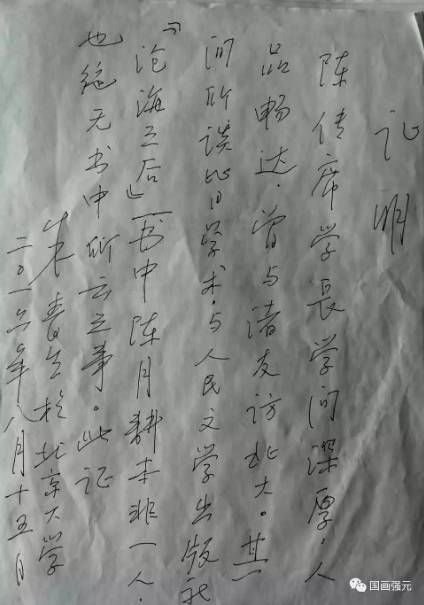 证明
陈传席学长学问深厚，人
品畅达，曾与诸友访北大。其
间所谈皆学术，与人民文学出版社
『沧海之后』一书中陈月耕本非一人，
也绝无书中所云之事。此证
朱青生於北京大学
二〇一六年八月十五日
国画强元